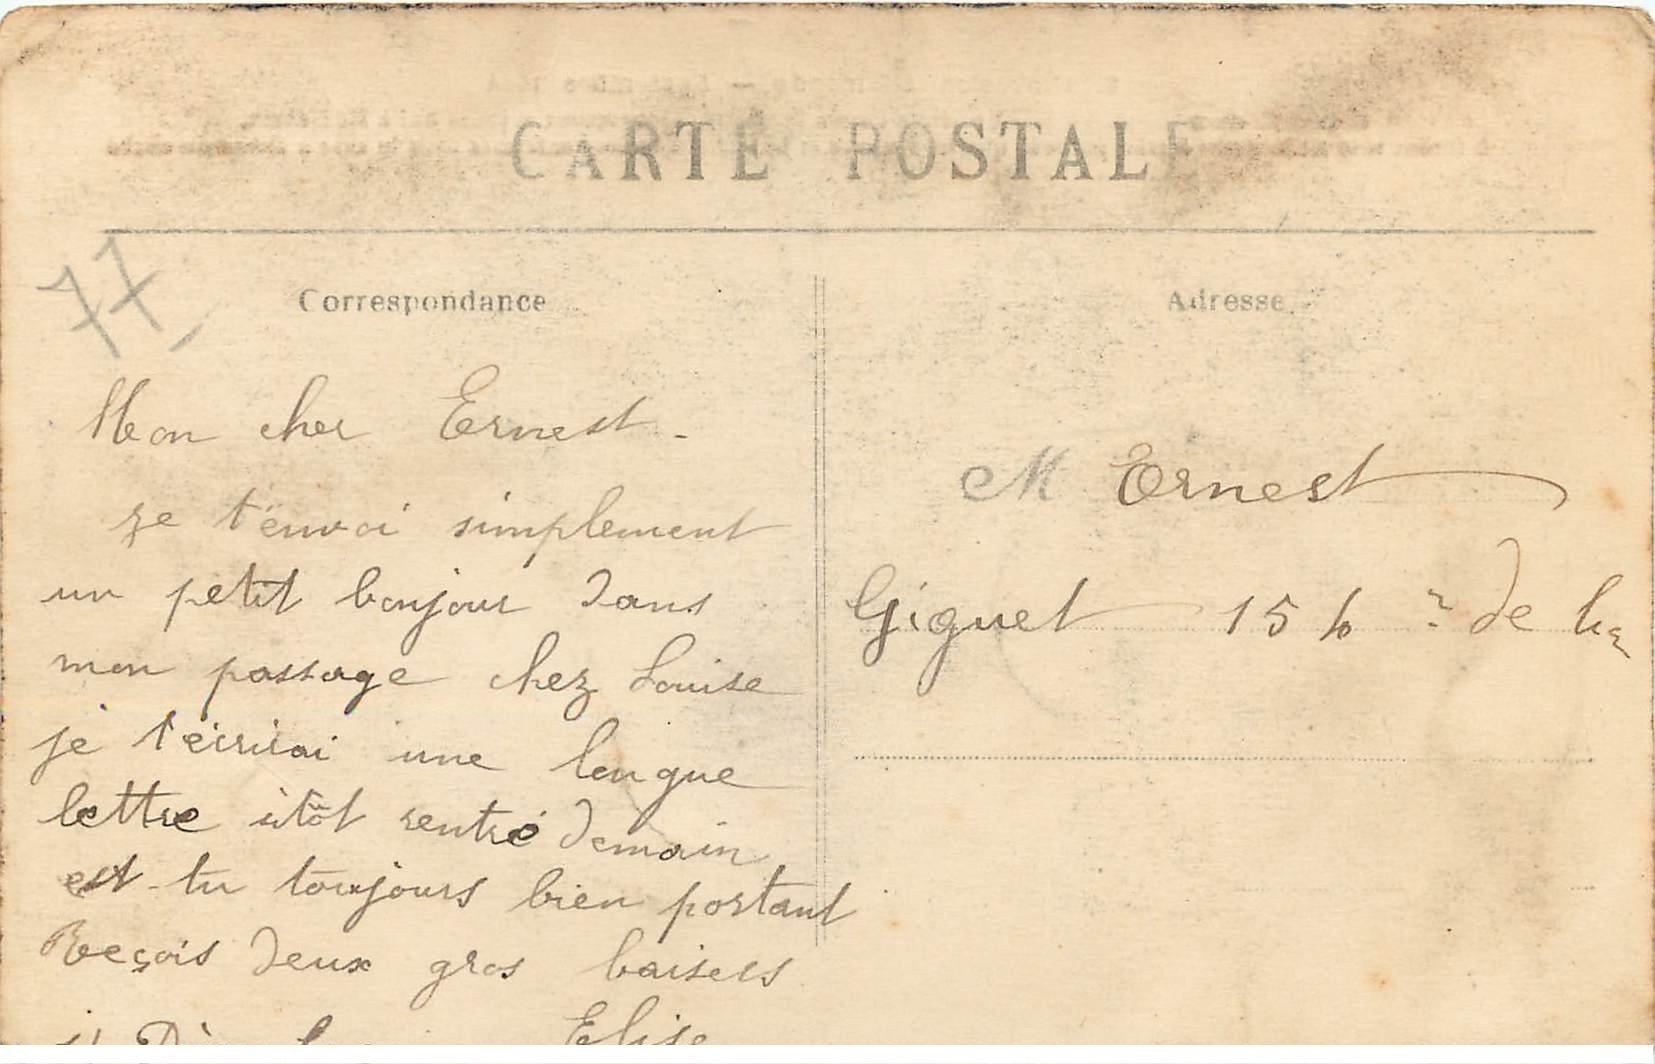 CARTE POSTALE
77
Correspondance
Adresse
Mon cher Ernest.
Je t'envoi simplement
un petit bonjour dans
mon passage chez Louise
je t'écrirai une longue
lettre sitôt rentré demain
est-tu toujours bien portant
Reçois deux gros baisers
Elise
M Ernest
Giguet 154 de